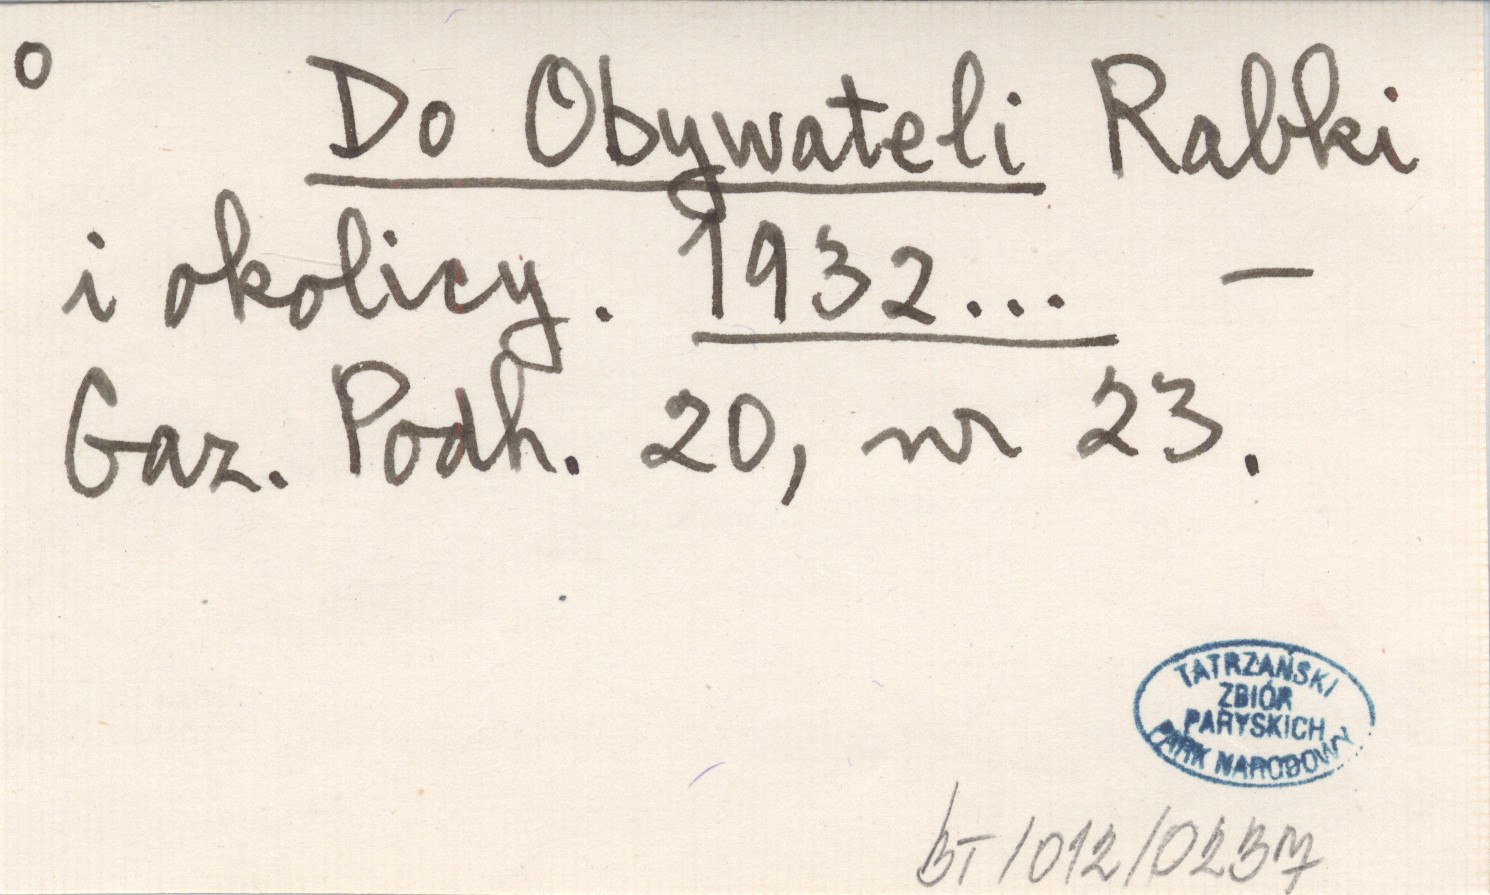 o Do Obywateli Rabki
i okolicy. 1932... –
Gaz. Podh. 20, nr 23.
TATRZAŃSKI
ZBIÓR
PARYSKICH
PARK NARODOWY
BT/012/0237